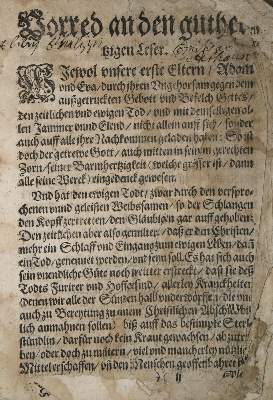 Vorred an den guther-
tzigen Leser.
WJewol vnsere erste Eltern / Adam
vnd Eva / durch jhren Vngehorsam gegen dem
außgetruckten Gebott vnd Befelch Gottes /
den zeitlichen vnd ewigen Tod / vnd mit demselbigen al-
len Jammer vnnd Elend / nicht allein auff sich / sonder
auch auff alle jhre Nachkommen geladen haben / So ist
doch der getrewe Gott / auch mitten in seinem gerechten
Zorn / seiner Barmhertzigkeit (welche grösser ist / dann
alle seine Werck) eingedenck gewesen.
Vnd hat den ewigen Todt / zwar durch den verspro-
chenen vnnd geleisten Weibssamen / so der Schlangen
den Kopff zertretten / den Gläubigen gar auffgehoben:
Den zeitlichen aber also gemiltert / daß er den Christen /
mehr ein Schlaff vnd Eingang zum ewigen Leben / dañ
ein Tod / genennet werden / vnd seyn soll. Es hat sich auch
sein vnendliche Güte noch weiter erstreckt / daß sie deß
Todts Furirer vnd Hoffgesind / allerley Kranckheiten
(denen wir alle der Sünden halb vnderworffen / die vns
auch zu Bereytung zu einem Christlichen Abschied
lich anmahnen sollen) biß auff das bestimpte Sterb-
stündlin / darfür noch kein Kraut gewachsen / abzutrei-
ben / oder doch zu miltern / viel vnd mancherley nützliche
Mittel erschaffen / vnd den Menschen geoffenbahret
ij